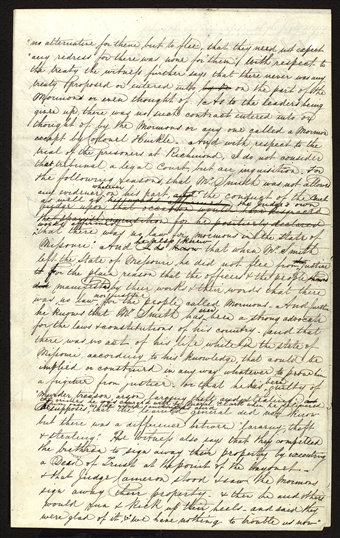 "no alternative for them, but to flee, that they need not expect
"any redress for there was none for them." With respect to
the treaty the witness further says that there never was any
treaty proposed or entered into on the part of the
Mormons or even thought of. As to the leaders being
given up, there was no such contract entered into or
thought of by the Mormons or any one called a Mormon
except by Colonel Hinkle. And with respect to the
trial of the prisoners at Richmond, I do not consider
that tribunal a legal court, but an inquisition. For
the following reasons, that Mr Smith was not allowed
any evidence on his part, the conduct of the Court
as well as the Judge's own
"that there was no law for mormons in the state of
Missouri." And he also knew that when Mr Smith
left the State of Missouri he did not flee from "justice"
for the plain reason that the officers & the people
manifested by their works & their words that there
was no law nor justice for the people called Mormons. And further
he knows that Mr Smith has ever been a strong advocate
for the laws & constitutions of his country. And that
there was no act of his life while in the state of
Missouri, according to his knowledge, that could be
implied or construed in any way whatever to prove him
a fugitive from justice. Or that he has been guilty of
murder, treason, arson, larceny, theft, and stealing.
supposes that the general did not know
but there was a difference between "larceny, theft
& stealing." The witness also says that they compelled
the brethren to sign away their property by executing
a Deed of Trust at the point of the bayonet.
& that Judge Cameron stood & saw the Mormons
sign away their property. & then he and others
would run & kick up their heels. and said they
were glad of it. & we have nothing to trouble us now.